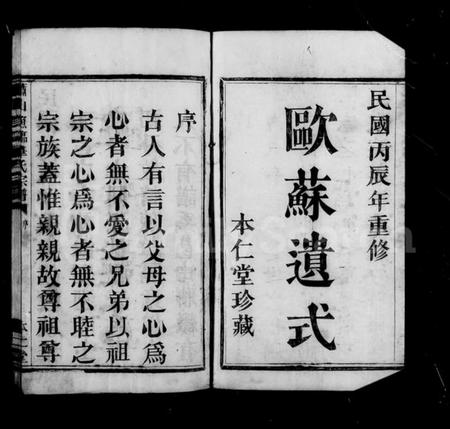 民國丙辰年重修
歐蘇遺式
本仁堂珍藏
序
古人有言以父母之心為
心者無不愛之兄弟以祖
宗之心為心者無不睦之
宗族蓋惟親親故尊祖尊
蕭山
氏宗譜
序
本仁堂